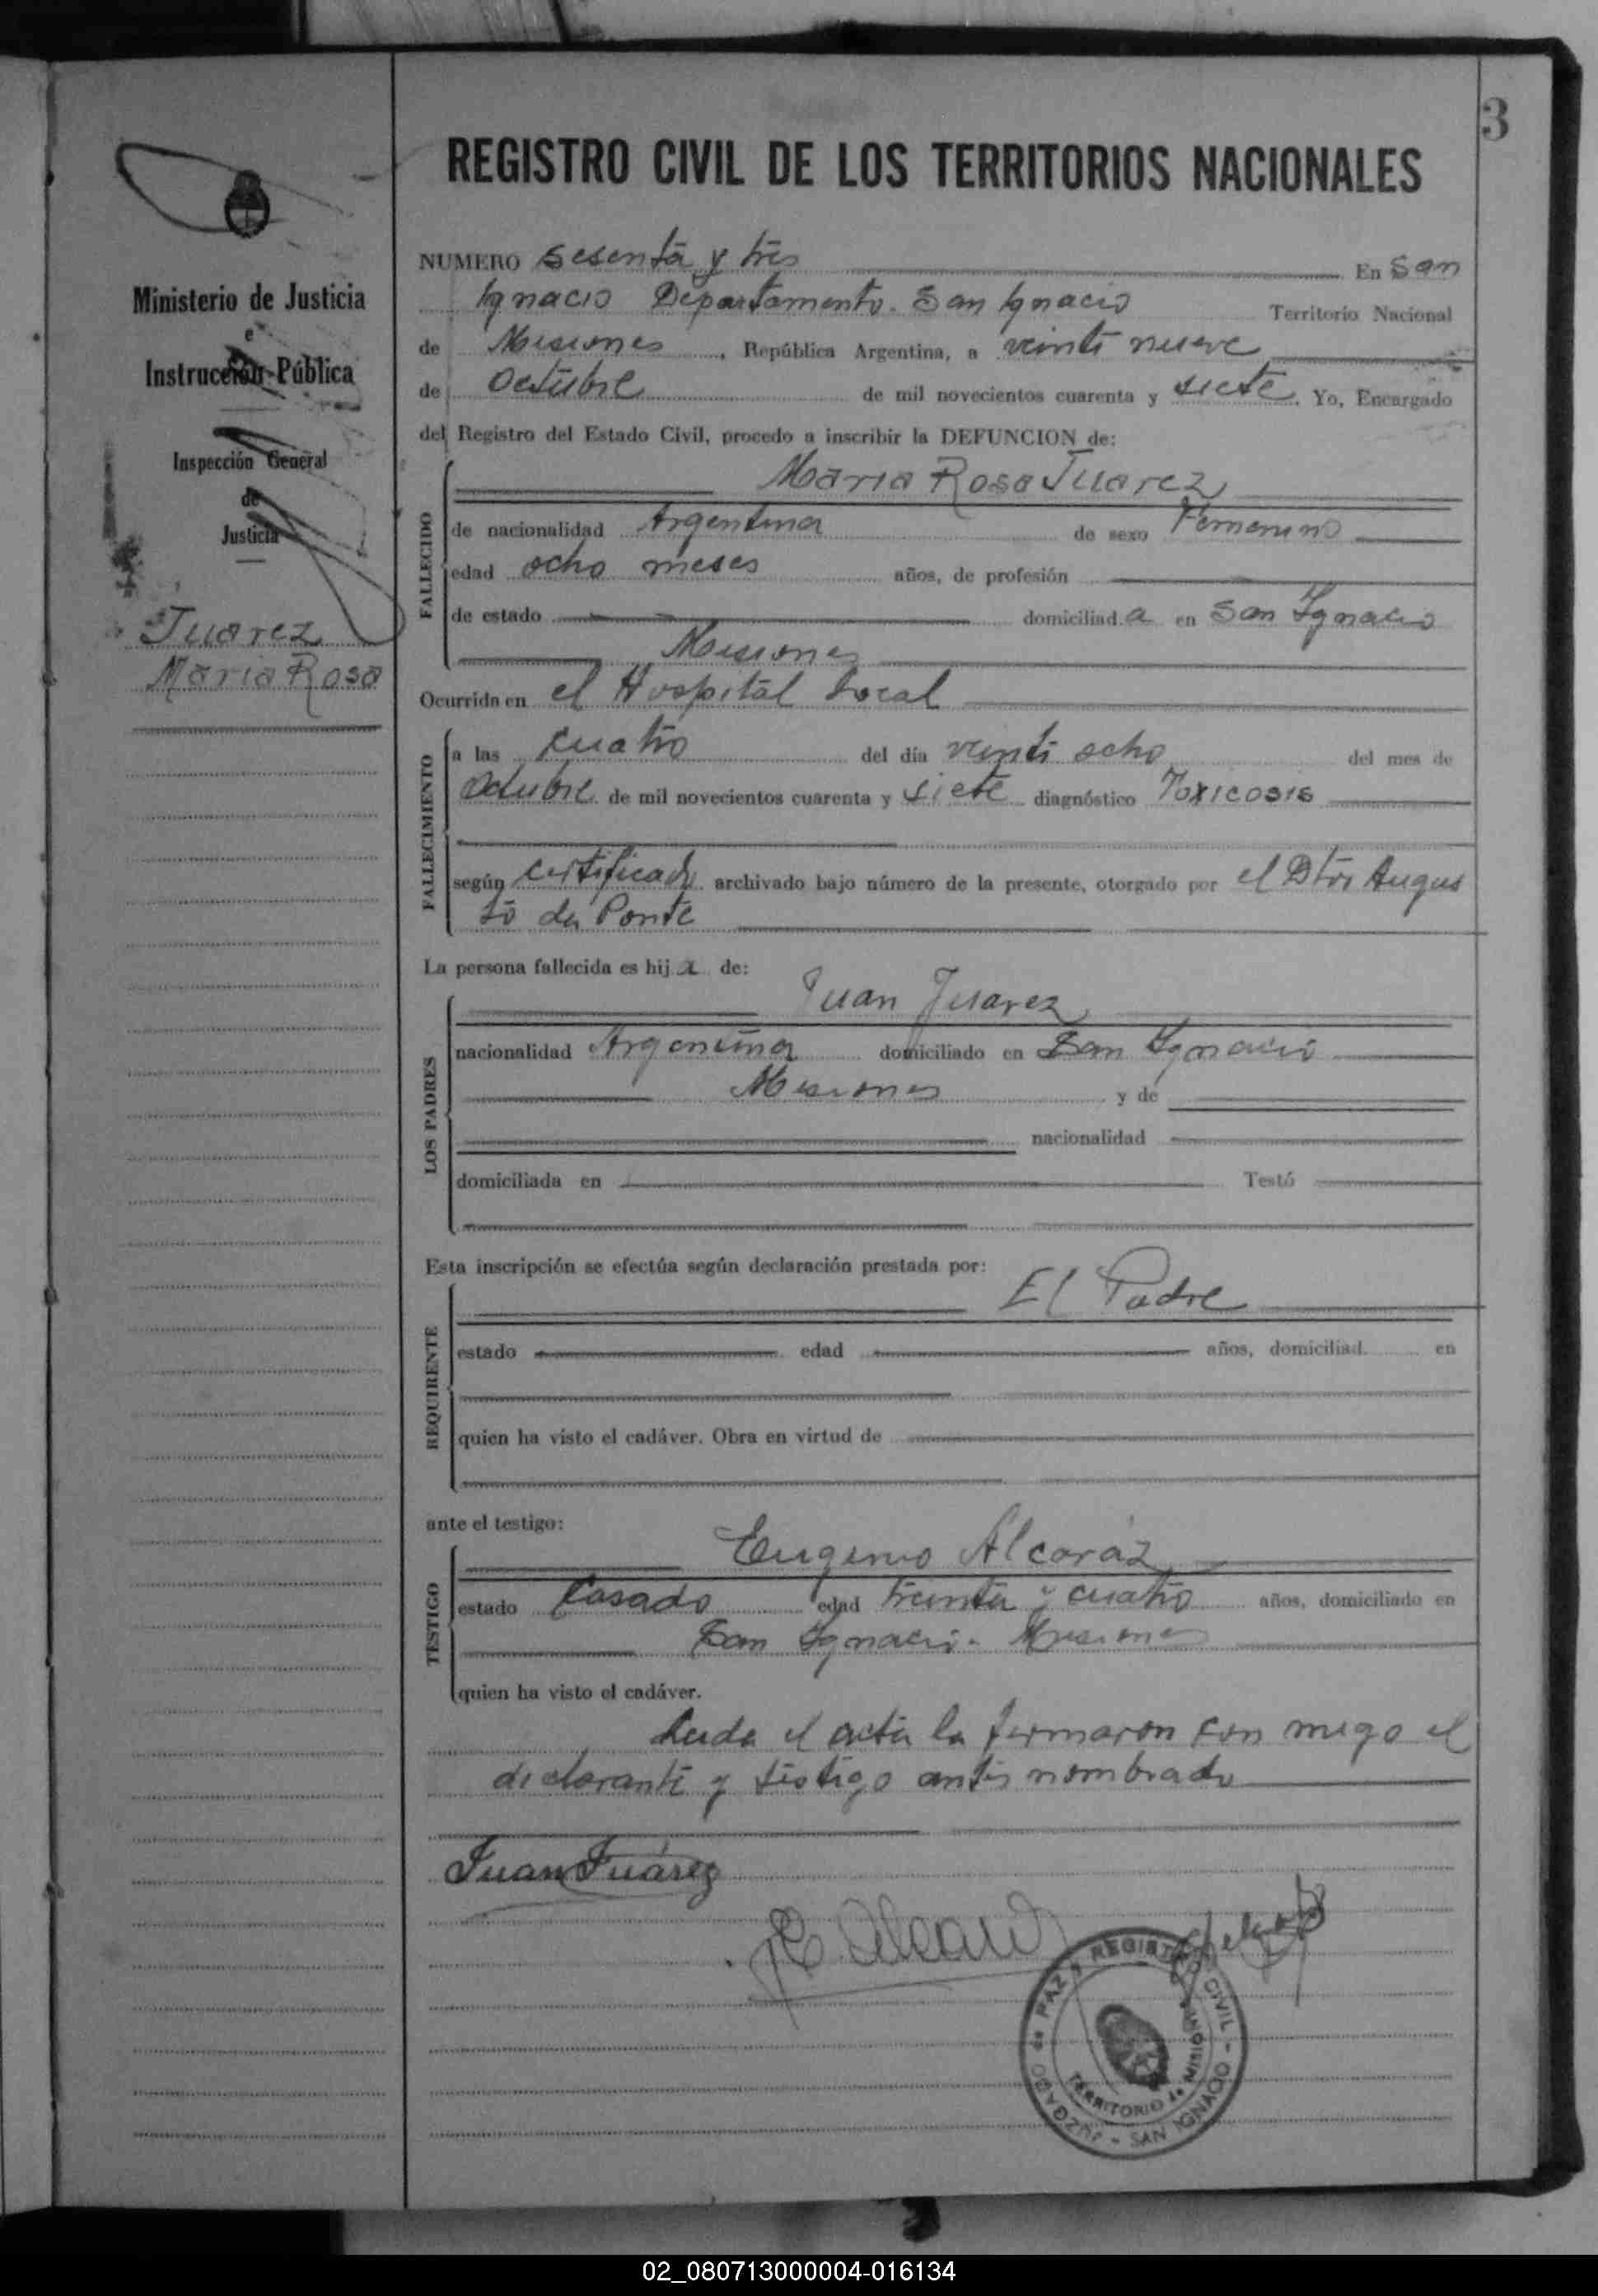 3
REGISTRO CIVIL DE LOS TERRITORIOS NACIONALES
Ministerio de Justicia
e
Instrucción Pública
Inspección General
de
Justicia
Juarez
Maria Rosa
NUMERO sesenta y tres En San
Ignacio Departamento. San Ignacio Territorio Nacional
de Misiones, República Argentina, a veinti nueve
de Octubre de mil novecientos cuarenta y siete. Yo, Encargado
del Registro del Estado Civil, procedo a inscribir la DEFUNCION de:
FALLECIDO
Maria Rosa Juarez
de nacionalidad Argentina de sexo Femenino
edad ocho meses años, de profesión
de estado domiciliad a en San Ignacio
Misiones
Ocurrida en el Hospital Local
FALLECIMIENTO
a las cuatro del día veinti ocho del mes de
Octubre de mil novecientos cuarenta y siete diagnóstico Toxicosis
según certificado archivado bajo número de la presente, otorgado por el Dtor Augus
to da Ponte
La persona fallecida es hij a de:
LOS PADRES
Juan Juarez
nacionalidad Argentina domiciliado en San Ignacio
Misiones y de
nacionalidad
domiciliada en Testó
Esta inscripción se efectúa según declaración prestada por:
REQUIRENTE
El Padre
estado edad años, domiciliad en
quien ha visto el cadáver. Obra en virtud de
ante el testigo:
TESTIGO
Eugenio Alcaráz
estado Casado edad treinta y cuatro años, domiciliado en
San Ignacio - Misiones
quien ha visto el cadáver.
Leida el acta la firmaron con migo el
declarante y testigo antes nombrado
Juan Juárez
E. Alcaraz
JUZGADO de PAZ y REGISTRO CIVIL - SAN IGNACIO -
TERRITORIO de MISIONES
02_080713000004-016134